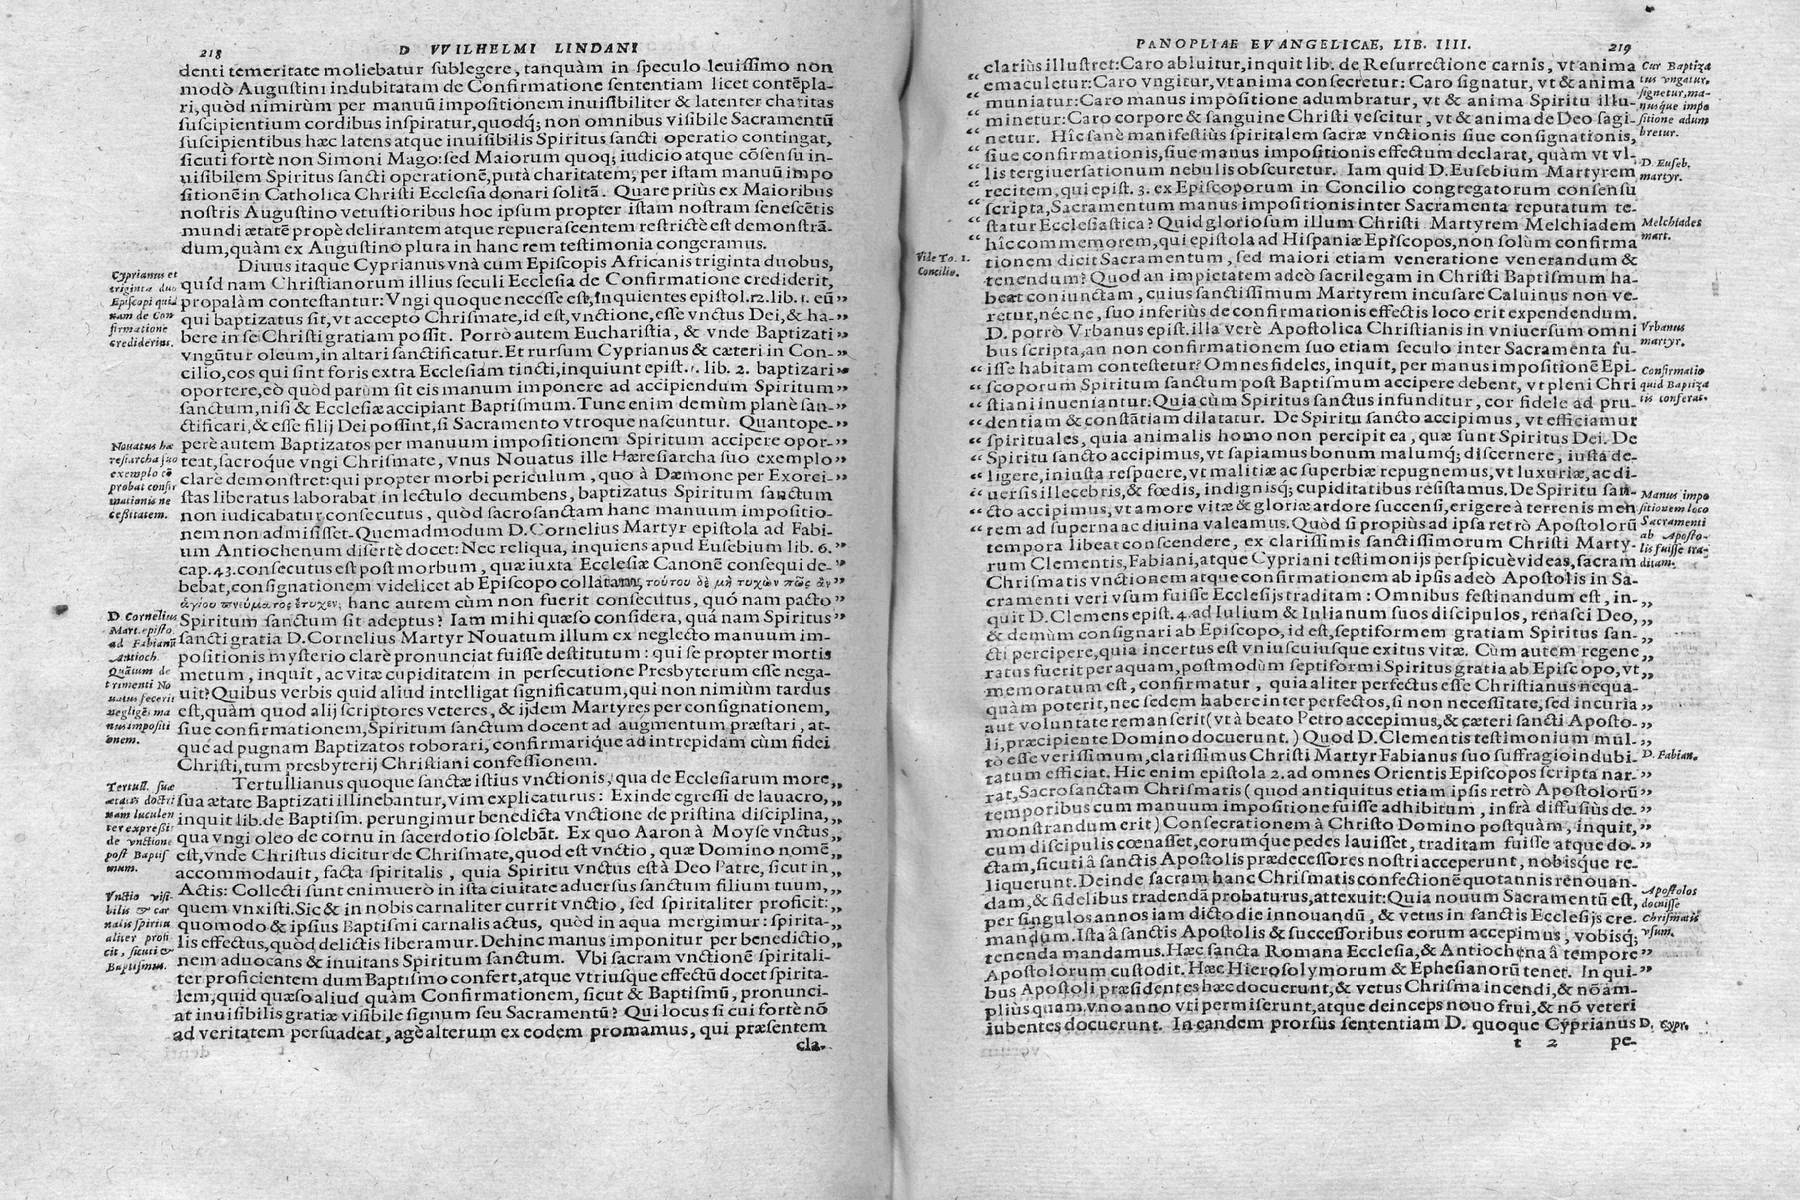 218
D VVILHELMI LINDANI
denti temeritate moliebatur ſublegere, tanquàm in ſpeculo leuiſſimo non
modò Auguſtini indubitatam de Confirmatione ſententiam licet contẽpla-
ri, quòd nimirùm per manuũ impoſitionem inuiſibiliter & latenter charitas
ſuſcipientium cordibus inſpiratur, quodq́; non omnibus viſibile Sacramentũ
ſuſcipientibus hæc latens atque inuiſibilis Spiritus ſancti operatio contingat,
ſicuti fortè non Simoni Mago: ſed Maiorum quoq; iudicio atque cõſenſu in-
uiſibilem Spiritus ſancti operationẽ, putà charitatem, per iſtam manuũ impo
ſitionẽ in Catholica Chriſti Eccleſia donari ſolitã. Quare priùs ex Maioribus
noſtris Auguſtino vetuſtioribus hoc ipſum propter iſtam noſtram ſeneſcẽtis
mundi ætatẽ propè delirantem atque repueraſcentem reſtrictè eſt demonſtrã-
dum, quàm ex Auguſtino plura in hanc rem teſtimonia congeramus.
Diuus itaque Cyprianus vnà cum Epiſcopis Africanis triginta duobus,
quiſd nam Chriſtianorum illius ſeculi Eccleſia de Confirmatione crediderit,
propalàm conteſtantur: Vngi quoque neceſſe eſt, inquientes epiſtol. 12. lib. 1. eũ ”
qui baptizatus ſit, vt accepto Chriſmate, id eſt, vnctione, eſſe vnctus Dei, & ha- ”
bere in ſe Chriſti gratiam poſſit. Porrò autem Euchariſtia, & vnde Baptizati ”
vngũtur oleum, in altari ſanctificatur. Et rurſum Cyprianus & cæteri in Con- ”
cilio, eos qui ſint foris extra Eccleſiam tincti, inquiunt epiſt. 1. lib. 2. baptizari ”
oportere, eò quòd parùm ſit eis manum imponere ad accipiendum Spiritum ”
ſanctum, niſi & Eccleſiæ accipiant Baptiſmum. Tunc enim demùm planè ſan- ”
ctificari, & eſſe filij Dei poſſint, ſi Sacramento vtroque naſcuntur. Quantope- ”
perè autem Baptizatos per manuum impoſitionem Spiritum accipere opor- ”
teat, ſacroq́ue vngi Chriſmate, vnus Nouatus ille Hæreſiarcha ſuo exemplo ”
clarè demonſtret: qui propter morbi periculum, quo à Dæmone per Exorci- ”
ſtas liberatus laborabat in lectulo decumbens, baptizatus Spiritum ſanctum
non iudicabatur conſecutus, quòd ſacroſanctam hanc manuum impoſitio-
nem non admiſiſſet. Quemadmodum D. Cornelius Martyr epiſtola ad Fabi-
um Antiochenum diſertè docet: Nec reliqua, inquiens apud Euſebium lib. 6. ”
cap. 43. conſecutus eſt poſt morbum, quæ iuxta Eccleſiæ Canonẽ conſequi de- ”
bebat, conſignationem videlicet ab Epiſcopo collatam, τούτου δὲ μὴ τυχὼν πῶς ἂν ”
ἁγίου πνεύματος ἔτυχεν; hanc autem cùm non fuerit conſecutus, quó nam pacto ”
Spiritum ſanctum ſit adeptus? Iam mihi quæſo conſidera, quá nam Spiritus ”
ſancti gratia D. Cornelius Martyr Nouatum illum ex neglecto manuum im-
poſitionis myſterio clarè pronunciat fuiſſe deſtitutum: qui ſe propter mortis
metum, inquit, ac vitæ cupiditatem in perſecutione Presbyterum eſſe nega-
uit? Quibus verbis quid aliud intelligat ſignificatum, qui non nimiùm tardus
eſt, quàm quod alij ſcriptores veteres, & ijdem Martyres per conſignationem,
ſiue confirmationem, Spiritum ſanctum docent ad augmentum præſtari, at-
que ad pugnam Baptizatos roborari, confirmariq́ue ad intrepidam cùm fidei
Chriſti, tum presbyterij Chriſtiani confeſſionem.
Tertullianus quoque ſanctæ iſtius vnctionis, qua de Eccleſiarum more „
ſua ætate Baptizati illinebantur, vim explicaturus: Exinde egreſſi de lauacro, „
inquit lib. de Baptiſm. perungimur benedicta vnctione de priſtina diſciplina, „
qua vngi oleo de cornu in ſacerdotio ſolebãt. Ex quo Aaron à Moyſe vnctus „
eſt, vnde Chriſtus dicitur de Chriſmate, quod eſt vnctio, quæ Domino nomẽ „
accommodauit, facta ſpiritalis, quia Spiritu vnctus eſt à Deo Patre, ſicut in „
Actis: Collecti ſunt enimuerò in iſta ciuitate aduerſus ſanctum filium tuum, „
quem vnxiſti. Sic & in nobis carnaliter currit vnctio, ſed ſpiritaliter proficit: „
quomodo & ipſius Baptiſmi carnalis actus, quòd in aqua mergimur: ſpirita- „
lis effectus, quòd delictis liberamur. Dehinc manus imponitur per benedictio „
nem aduocans & inuitans Spiritum ſanctum. Vbi ſacram vnctionẽ ſpiritali-
ter proficientem dum Baptiſmo confert, atque vtriuſque effectũ docet ſpirita-
lem, quid quæſo aliud quàm Confirmationem, ſicut & Baptiſmũ, pronunci-
at inuiſibilis gratiæ viſibile ſignum ſeu Sacramentũ? Qui locus ſi cui fortè nõ
ad veritatem perſuadeat, agè alterum ex eodem promamus, qui præſentem
cla-
Cyprianus et
triginta duo
Epiſcopi quid
nam de Con
firmatione
crediderint.
Nouatus hæ
reſiarcha ſuo
exemplo cõ
probat confir
mationis ne
ceßitatem.
D. Cornelius
Mart. epiſto.
ad Fabianũ
Antioch.
Quãtum de
trimenti No
uatus fecerit
neglige. ma
nus impoſiti
onem.
Tertull. ſuæ
ætatis doctri
nam luculen
ter expreßit
de vnctione
poſt Baptiſ
mum.
Vnctio viſi-
bilis & car
nalis ſpiritu
aliter profi
cit, ſicuti &
Baptiſmus.
PANOPLIAE EVANGELICAE, LIB. IIII.
219
clariùs illuſtret: Caro abluitur, inquit lib. de Reſurrectione carnis, vt anima
“ emaculetur: Caro vngitur, vt anima conſecretur: Caro ſignatur, vt & anima
“ muniatur: Caro manus impoſitione adumbratur, vt & anima Spiritu illu-
“ minetur: Caro corpore & ſanguine Chriſti veſcitur, vt & anima de Deo ſagi-
“ netur. Hîc ſanè manifeſtiùs ſpiritalem ſacræ vnctionis ſiue conſignationis,
“ ſiue confirmationis, ſiue manus impoſitionis effectum declarat, quàm vt vl-
“ lis tergiuerſationum nebulis obſcuretur. Iam quid D. Euſebium Martyrem
“ recitem, qui epiſt. 3. ex Epiſcoporum in Concilio congregatorum conſenſu
“ ſcripta, Sacramentum manus impoſitionis inter Sacramenta reputatum te-
“ ſtatur Eccleſiaſtica? Quid glorioſum illum Chriſti Martyrem Melchiadem
“ hîc commemorem, qui epiſtola ad Hiſpaniæ Epiſcopos, non ſolùm confirma
tionem dicit Sacramentum, ſed maiori etiam veneratione venerandum &
tenendum? Quod an impietatem adeò ſacrilegam in Chriſti Baptiſmum ha-
beat coniunctam, cuius ſanctiſſimum Martyrem incuſare Caluinus non ve-
retur, néc ne, ſuo inferiùs de confirmationis effectis loco erit expendendum.
D. porrò Vrbanus epiſt. illa verè Apoſtolica Chriſtianis in vniuerſum omni
bus ſcripta, an non confirmationem ſuo etiam ſeculo inter Sacramenta fu-
“ iſſe habitam conteſtetur? Omnes fideles, inquit, per manus impoſitionẽ Epi-
“ ſcoporum Spiritum ſanctum poſt Baptiſmum accipere debent, vt pleni Chri
“ ſtiani inueniantur: Quia cùm Spiritus ſanctus infunditur, cor fidele ad pru-
“ dentiam & conſtãtiam dilatatur. De Spiritu ſancto accipimus, vt efficiamur
“ ſpirituales, quia animalis homo non percipit ea, quæ ſunt Spiritus Dei. De
“ Spiritu ſancto accipimus, vt ſapiamus bonum malumq́; diſcernere, iuſta de-
“ ligere, iniuſta reſpuere, vt malitiæ ac ſuperbiæ repugnemus, vt luxuriæ, ac di-
“ uerſis illecebris, & fœdis, indigniſq́; cupiditatibus reſiſtamus. De Spiritu ſan-
“ cto accipimus, vt amore vitæ & gloriæ ardore ſuccenſi, erigere à terrenis men
“ rem ad ſuperna ac diuina valeamus. Quòd ſi propiùs ad ipſa retrò Apoſtolorũ
tempora libeat conſcendere, ex clariſſimis ſanctiſſimorum Chriſti Marty-
rum Clementis, Fabiani, atque Cypriani teſtimonijs perſpicuè videas, ſacram
Chriſmatis vnctionem atque confirmationem ab ipſis adeò Apoſtolis in Sa-
cramenti veri vſum fuiſſe Eccleſijs traditam: Omnibus feſtinandum eſt, in- „
quit D. Clemens epiſt. 4. ad Iulium & Iulianum ſuos diſcipulos, renaſci Deo, „
& demùm conſignari ab Epiſcopo, id eſt, ſeptiformem gratiam Spiritus ſan- „
cti percipere, quia incertus eſt vniuſcuiuſque exitus vitæ. Cùm autem regene „
ratus fuerit per aquam, poſtmodùm ſeptiformi Spiritus gratia ab Epiſcopo, vt „
memoratum eſt, confirmatur, quia aliter perfectus eſſe Chriſtianus nequa- „
quàm poterit, nec ſedem habere inter perfectos, ſi non neceſſitate, ſed incuria „
aut voluntate remanſerit (vt à beato Petro accepimus, & cæteri ſancti Apoſto- „
li, præcipiente Domino docuerunt.) Quod D. Clementis teſtimonium mul- „
tò eſſe veriſſimum, clariſſimus Chriſti Martyr Fabianus ſuo ſuffragio indubi- „
tatum efficiat. Hic enim epiſtola 2. ad omnes Orientis Epiſcopos ſcripta nar- ”
rat, Sacroſanctam Chriſmatis (quod antiquitus etiam ipſis retrò Apoſtolorũ ”
temporibus cum manuum impoſitione fuiſſe adhibitum, infrà diffuſiùs de- ”
monſtrandum erit) Conſecrationem à Chriſto Domino poſtquàm, inquit, ”
cum diſcipulis cœnaſſet, eorumque pedes lauiſſet, traditam fuiſſe atque do- ”
ctam, ſicuti à ſanctis Apoſtolis prædeceſſores noſtri acceperunt, nobiſque re-
liquerunt. Deinde ſacram hanc Chriſmatis confectionẽ quotannis renouan-
dam, & fidelibus tradendã probaturus, attexuit: Quia nouum Sacramentũ eſt,
per ſingulos annos iam dicto die innouandũ, & vetus in ſanctis Eccleſijs cre-
mandum. Iſta à ſanctis Apoſtolis & ſucceſſoribus eorum accepimus, vobiſq́;
tenenda mandamus. Hæc ſancta Romana Eccleſia, & Antiochena à tempore ”
Apoſtolorum cuſtodit. Hæc Hieroſolymorum & Epheſianorũ tenet. In qui- ”
bus Apoſtoli præſidentes hæc docuerunt, & vetus Chriſma incendi, & nõ am-
pliùs quam vno anno vti permiſerunt, atque deinceps nouo frui, & nõ veteri
iubentes docuerunt. In eandem prorſus ſententiam D. quoque Cyprianus
t 2
pe-
Vide To. 1.
Concilio.
Cur Baptiza
tus vngatur,
ſignetur, ma-
nuſque impo
ſitione adum
bretur.
D. Euſeb.
martyr.
Melchiades
mart.
Vrbanus
martyr.
Confirmatio
quid Baptiza
tis conferat.
Manus impo
ſitionem loco
Sacramenti
ab Apoſto-
lis fuiſſe tra-
ditam.
D. Fabian.
Apoſtolos
docuiſſe
Chriſmatis
vſum.
D. Cypr.